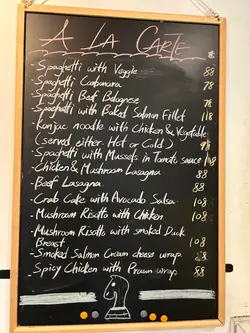 A LA CARTE
- Spaghetti with Veggie 88
- Spaghetti Carbonara 78
- Spaghetti Beef Bolognese 78
- Spaghetti with Baked Salmon Fillet 118
- Konjac noodle with Chicken & Vegetable
(served either Hot or Cold) 98
- Spaghetti with Mussels in Tomato sauce 108
- Chicken & Mushroom Lasagna 88
- Beef Lasagna 88
- Crab Cake with Avocado Salsa 108
- Mushroom Risotto with Chicken 108
- Mushroom Risotto with smoked Duck
Breast 108
- Smoked Salmon Cream cheese wrap 88
- Spicy Chicken with Prawn wrap 88